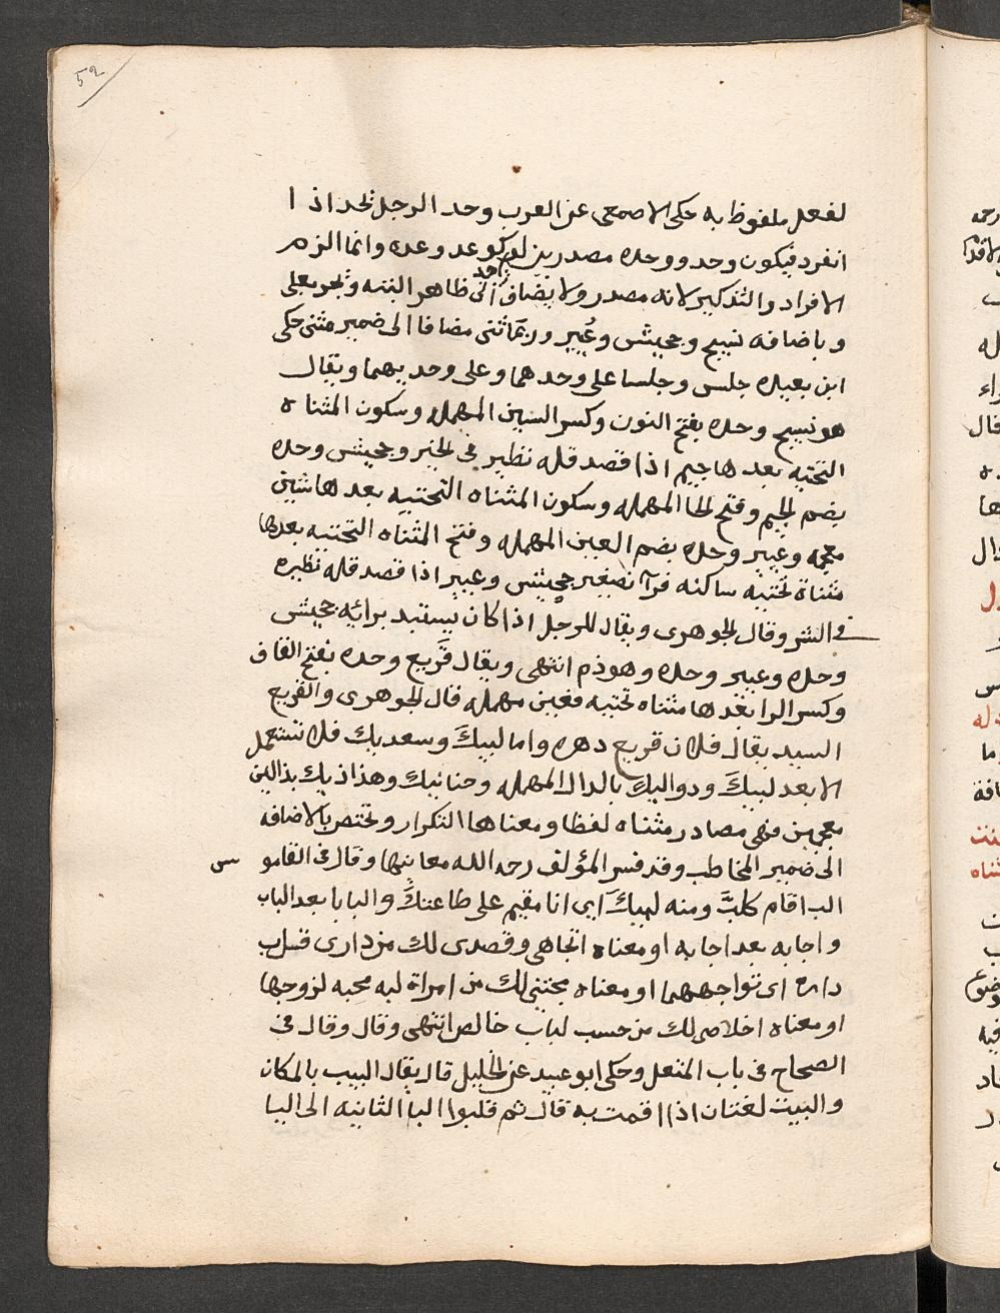 52
لفعل ملفوظ به حكى الاصمعى عن العرب وحد الرجل يحد اذا
انفرد فيكون وحد ووحده مصدرين له كوعد وعده وانما الزم
الافراد والتذكير لانه مصدر ولا يضاف الى ظاهر البته ويجر بعلى
وباضافه نسيج وجحيش وعُيير وربمّا ثنى مضافا الى ضمير مثنى حكى
ابن بعيده جلس وجلسا على وحدهما وعلى وحديهما ويقال
هو نسيج وحده بفتح النون وكسر السين المهمله وسكون المثناه
التحتيه بعدها جيم اذا قصد قله نظير فى الخير وجحيش وحده
بضم الجيم وفتح الحا المهمله وسكون المثناه التحتيه بعدها شين
معجمه وعيير وحده بضم العين المهمله وفتح المثناه التحتيه بعدها
مثناة تحتيه ساكنه فرآ تصغير جحيش وعيير اذا قصد قله نظيره
فى الشر وقال الجوهرى ويقال للرجل اذا كان يستبد برائه جحيش
وحده وعيير وحده وهو ذم انتهى ويقال قَريع وحده بفتح القاف
وكسر الرا بعدها مثناه تحتيه فعين مهمله قال الجوهرى والقريع
السيد يقال فلان قريع دهره واما لبيكَ وسعديك فلا تستعمل
الا بعد لبيكَ ودواليك بالدال المهمله وحنانيك وهذاذيك بذالين
معجمين فهى مصادر مثناه لفظا ومعناها التكرار وتختص بالاضافه
الى ضمير المخاطب وقد فسر المؤلف رحمه الله معانيها وقال فى القامو
س
الب اقام كلبّ ومنه لبيكَ اى انا مقيم على طاعتكَ والبابا بعد الباب
واجابه بعد اجابه او معناه اتجاهى وقصدى لك من دارى تلب
داره اى تواجهها او معناه محبتى لك من امراة لبه محبه لزوجها
او معناه اخلاصى لك من حسب لباب خالص انتهى وقال وقال فى
الصحاح فى باب المعتل وحكى ابو عبيد عن الخليل قال يقال البيب بالمكان
والبيت لغتان اذا اقمت به قال ثم قلبوا البا الثانيه الى اليا